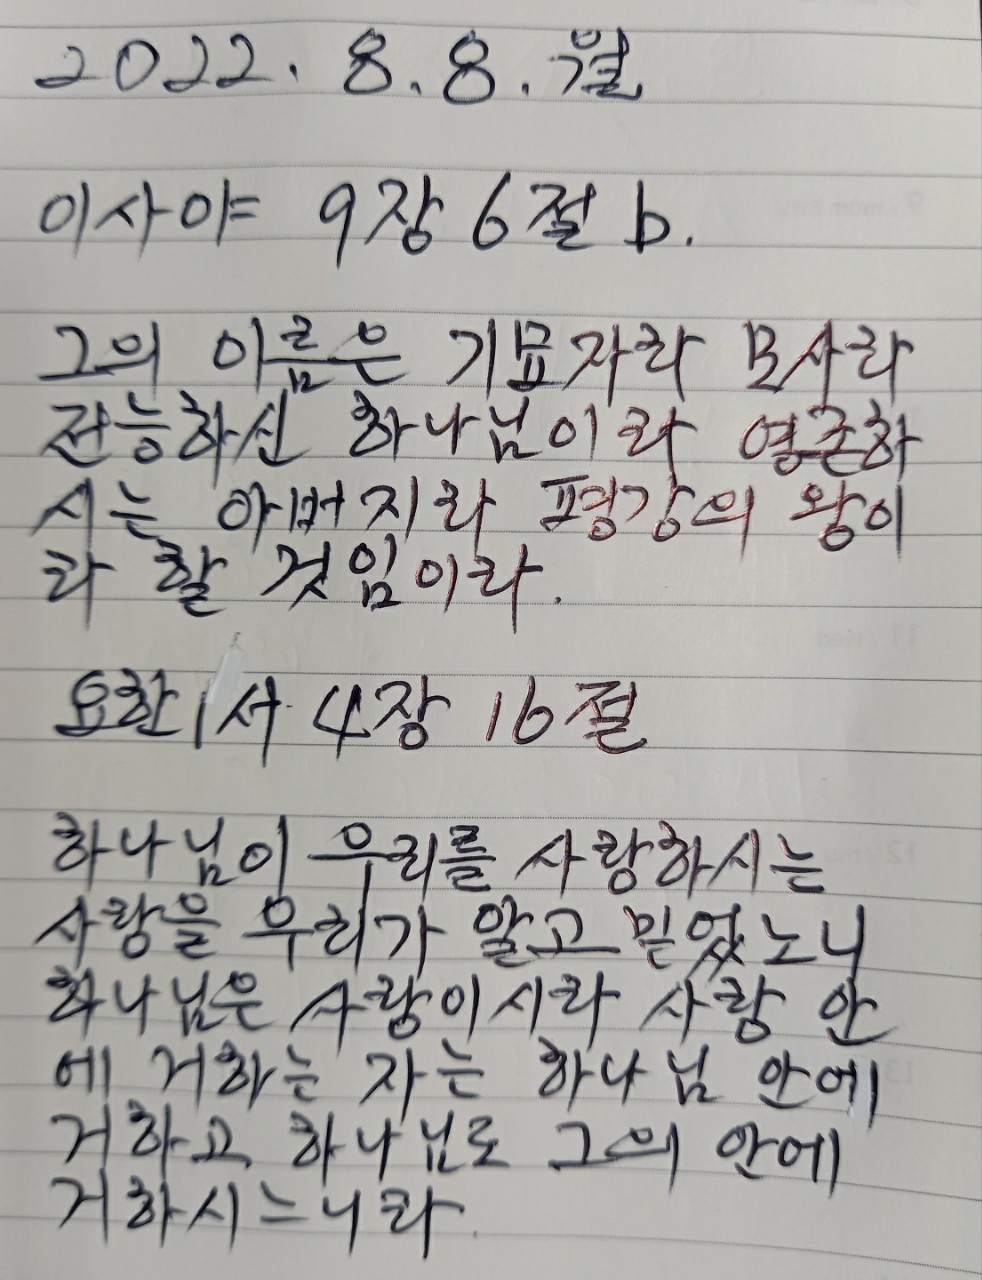 2022. 8. 8. 월
이사야 9장 6절 b.
그의 이름은 기묘자라 모사라
전능하신 하나님이라 영존하
시는 아버지라 평강의 왕이
라 할 것임이라.
요한1서 4장 16절
하나님이 우리를 사랑하시는
사랑을 우리가 알고 믿었노니
하나님은 사랑이시라 사랑 안
에 거하는 자는 하나님 안에
거하고 하나님도 그의 안에
거하시느니라